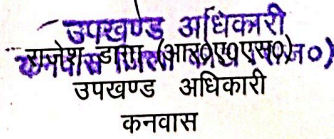 उपखण्ड अधिकारी
राजेश डागा (आर०ए०एस०)
कनवास
उपखण्ड अधिकारी
कनवास